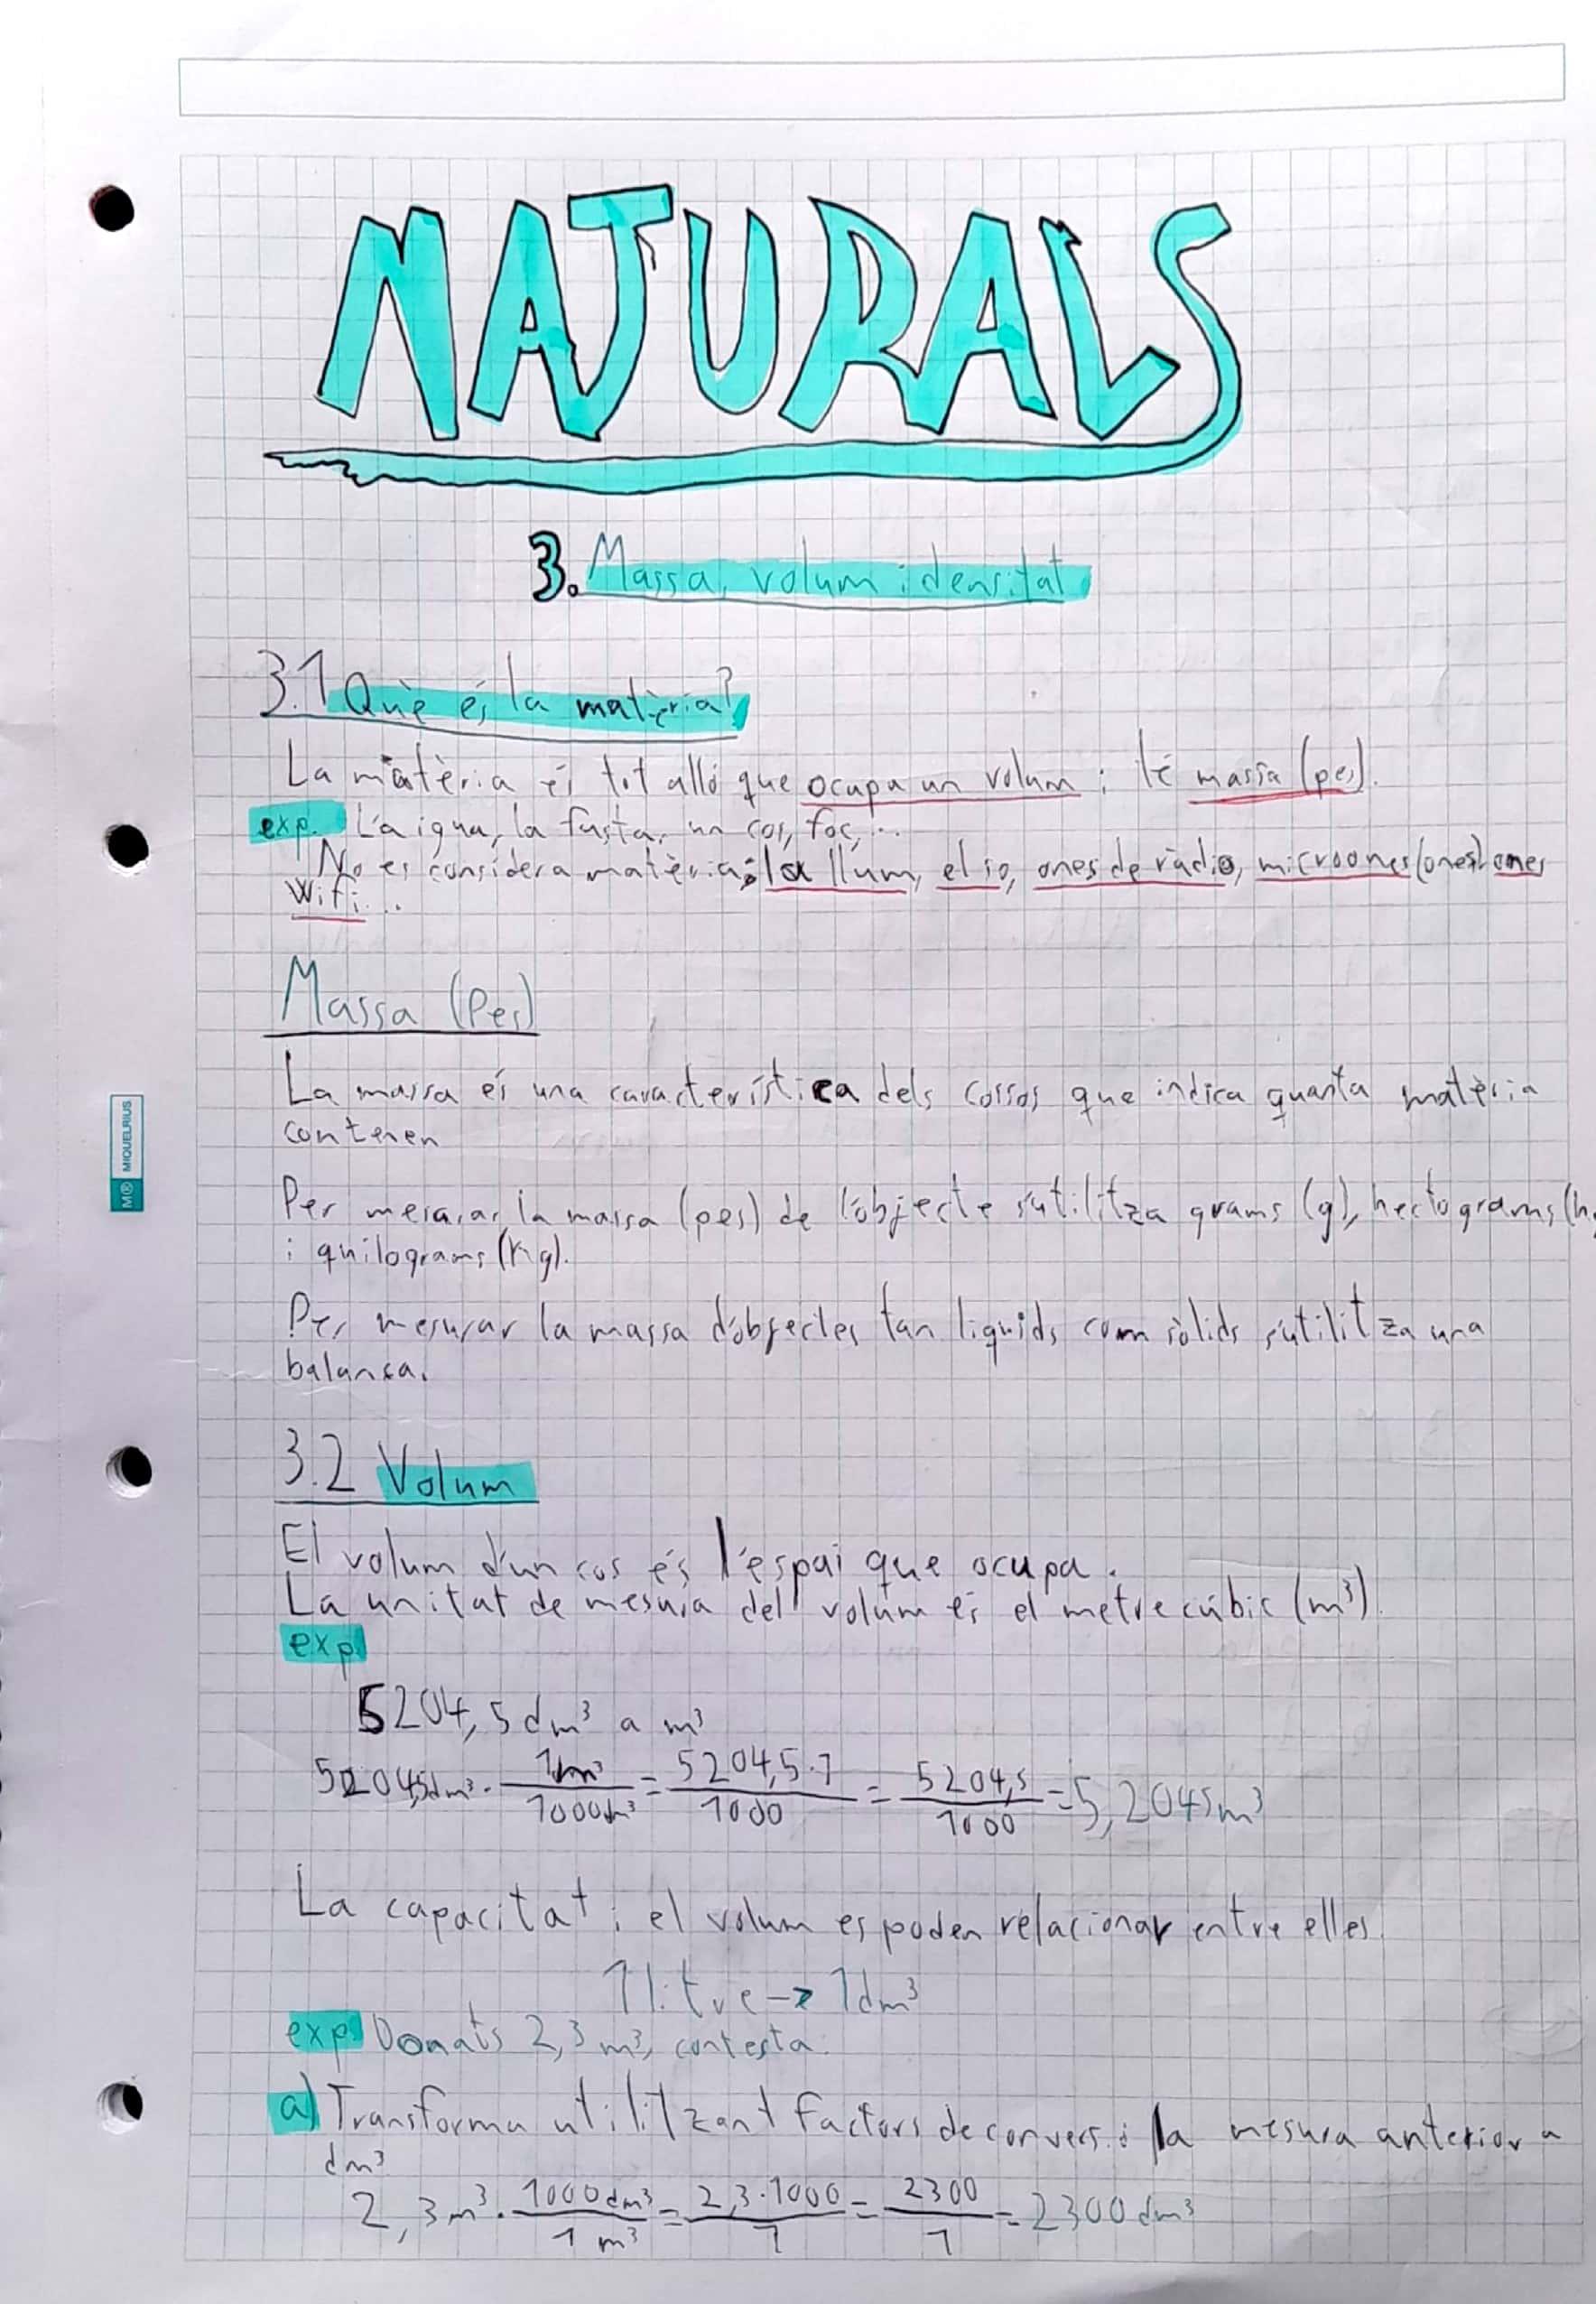 NATURALS
3. Massa, volum i densitat
3.1 Què és la matèria?
La matèria és tot allò que ocupa un volum i té massa (pes).
exp. L'aigua, la fusta, un cos, foc,...
No es considera matèria: la llum, el so, ones de ràdio, microones (ones) ones
Wifi...
Massa (Pes)
La massa és una característica dels cossos que indica quanta matèria
contenen
Per mesurar la massa (pes) de l'objecte s'utilitza grams (g), hectograms (h
i quilograms (Kg).
Per mesurar la massa d'objectes tan liquids com sòlids s'utilitza una
balança.
M® MIQUELRIUS
3.2 Volum
El volum d'un cos és l'espai que ocupa.
La unitat de mesura del volum és el metre cúbic (m³)
exp.
5204,5 dm³ a m³
5204,5dm³ · 1m³/1000dm³ = 5204,5·1/1000 = 5204,5/1000 = 5,2045m³
La capacitat i el volum es poden relacionar entre elles.
1 litre → 1dm³
exp. Donats 2,3 m³, contesta:
a) Transforma utilitzant factors de conversió la mesura anterior a
dm³
2,3m³ · 1000dm³/1m³ = 2,3·1000/1 = 2300/1 = 2300 dm³